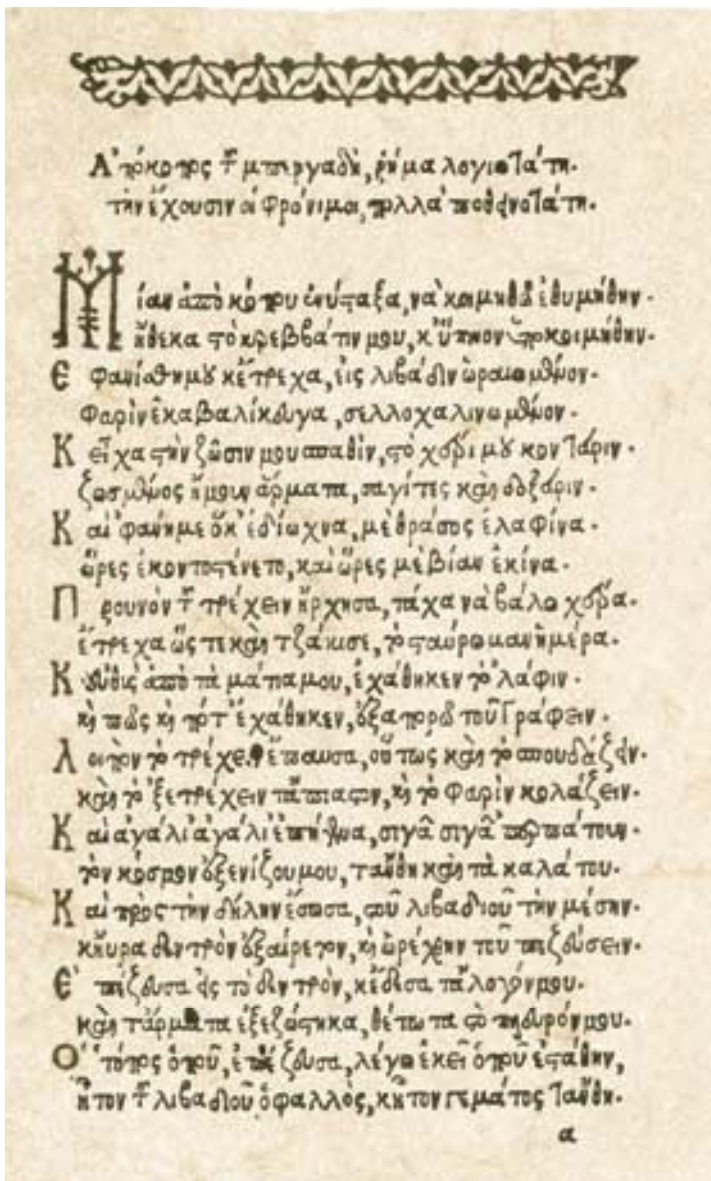 Ἀπόκοπος τοῦ μπεργαδῆ, ῥήμα λογιωτάτη.
τὴν ἔχουσιν οἱ φρόνιμοι, πολλὰ ποθεινοτάτη.
Μίαν ἀπὸ κόπου ἐνύσταξα, νὰ κοιμηθῶ ἐθυμήθην.
ἤθεκα στὸ κρεββάτιν μου, κ' ὕπνον ἀποκοιμήθην.
Ἐφανίσθη μου κ' ἔτρεχα, εἰς λιβάδιν ὡραιωμένον.
Φαρὶν ἐκαβαλίκευγα, σελλοχαλινωμένον.
Κ εἶχα στὴν ζῶσιν μου σπαθὶν, στὸ χέρι μου κοντάριν.
ζωσμένος ἤμουν ἄρματα, σαγίτες καὶ δοξάριν.
Καὶ φάνημε ὅκ' ἐδίωχνα, μὲ θράσος ἐλαφίνα.
ὥρες ἐκοντοστένετο, καὶ ὥρες μὲ βίαν ἐκίνα.
Προυνὸν τοῦ τρέχειν ἤρχησα, τάχα νὰ βάλω χέρα.
ἔτρεχα ὥς τε καὶ τζάκισε, τὸ σταύρωμαν ἡμέρα.
Κ εὐθὺς ἀπὸ τὰ μάτια μου, ἐχάθηκεν τὸ λάφιν.
καὶ πῶς καὶ πότ' ἐχάθηκεν, ἐξαπορῶ τοῦ γράφειν.
Λοιπὸν τὸ τρέχειν ἔπαυσα, οὕτως καὶ τὸ σπουδάζειν.
καὶ τὸ ξετρέχειν τἄπιαστον, καὶ τὸ φαρὶν κολάζειν.
Καὶ ἀγάλι ἀγάλι ἐπήγαινα, σιγὰ σιγὰ ἐπορπάτουν.
τὸν κόσμον ἐξενίζουμου, τἄνθη καὶ τὰ καλά του.
Καὶ πρὸς τὴν δείλην ἔσωσα, τοῦ λιβαδιοῦ τὴν μέσην.
κηὗρα δεντρὸν ἐξαίρετον, καὶ ὠρέχθην τοῦ πεζεύσειν.
Ἐπέζευσα εἰς τὸ δεντρὸν, κ' ἔδεσα τἄλογόν μου.
καὶ τἄρματα ἐξεζώστηκα, θέτω τα στὸ πλευρόν μου.
Ὁ τόπος ὁποῦ ἐπέζευσα, λέγω ἐκεῖ ὁποῦ ἐστάθην,
ἦτον τοῦ λιβαδιοῦ ὀφαλλὸς, κἦτον γεμάτος τἄνθη.
α